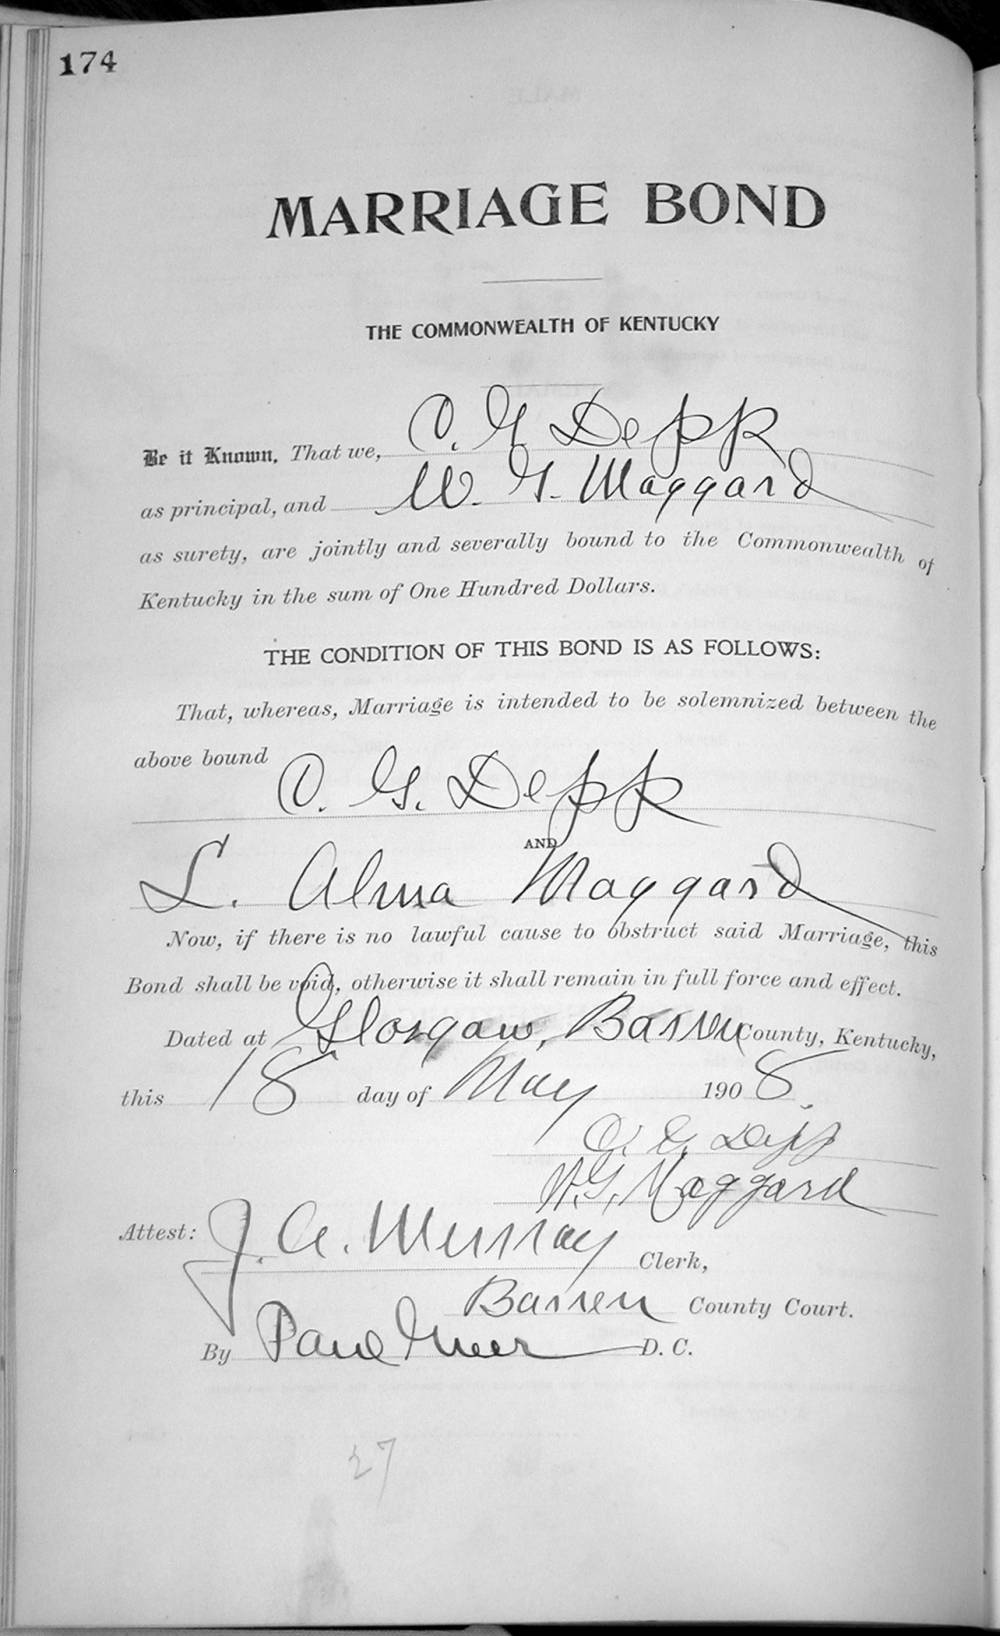 174
MARRIAGE BOND
THE COMMONWEALTH OF KENTUCKY
Be it Known, That we, O. G. Depp
as principal, and W. G. Maggard
as surety, are jointly and severally bound to the Commonwealth of
Kentucky in the sum of One Hundred Dollars.
THE CONDITION OF THIS BOND IS AS FOLLOWS:
That, whereas, Marriage is intended to be solemnized between the
above bound O. G. Depp
AND
L. Alma Maggard
Now, if there is no lawful cause to obstruct said Marriage, this
Bond shall be void, otherwise it shall remain in full force and effect.
Dated at Glasgow, Barren County, Kentucky,
this 18 day of May 1908.
O. G. Depp
W. G. Maggard
Attest: J. A. Murray Clerk,
Barren County Court.
By Paul Greer D. C.
27